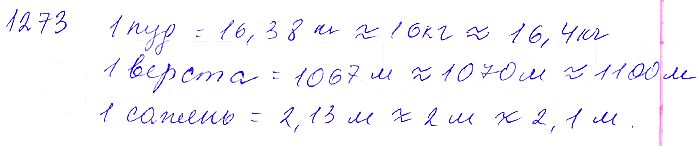 1273 1 пуд = 16,38 кг ≈ 16кг ≈ 16,4кг
1 верста = 1067 м ≈ 1070 м ≈ 1100 м
1 сажень = 2,13 м ≈ 2 м ≈ 2,1 м.